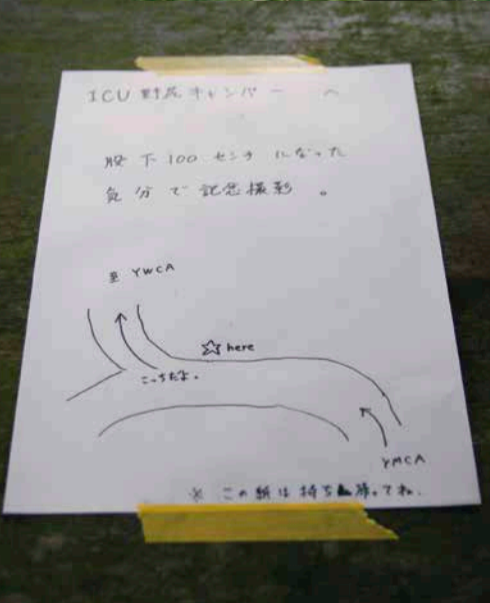 ICU 野尻キャンパー へ
股下100センチになった
気分で記念撮影。
至 YWCA
☆ here
こっちだよ。
YMCA
※ この紙は持ち帰ってね。